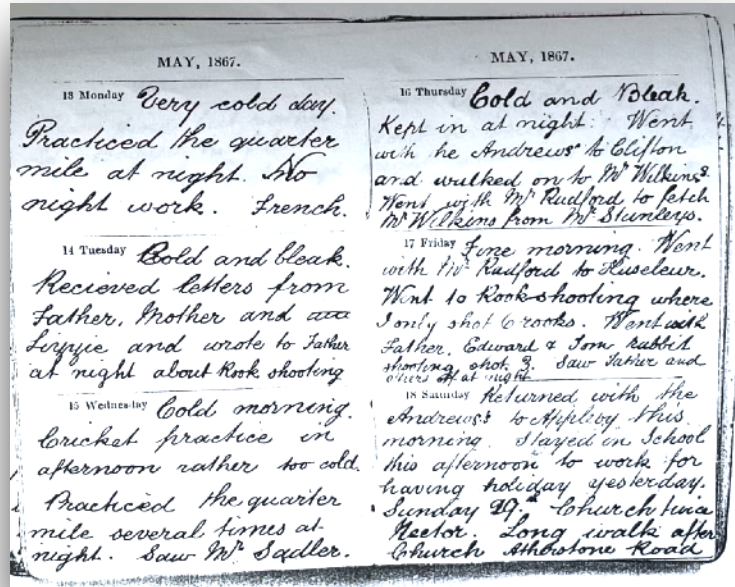 MAY, 1867.
13 Monday Very cold day.
Practiced the quarter
mile at night. No
night work. French.
14 Tuesday Cold and bleak.
Recieved letters from
Father, Mother and
Lizzie and wrote to Father
at night about Rook shooting
15 Wednesday Cold morning.
Cricket practice in
afternoon rather too cold.
Practiced the quarter
mile several times at
night. Saw Mr Sadler.
MAY, 1867.
16 Thursday Cold and Bleak.
Kept in at night. Went
with he Andrews' to Clifton
and walked on to Mr Wilkins.
Went with Mr Radford to fetch
Mr Wilkins from Mr Stanleys.
17 Friday Fine morning. Went
with Mr Radford to
Went to Rook shooting where
I only shot 6 rooks. Went with
Father, Edward & Tom rabbit
shooting shot 3. Saw Father and
others off at night
18 Saturday Returned with the
Andrews's to Appleby this
morning. Stayed in School
this afternoon to work for
having holiday yesterday.
Sunday 19. Church twice
Rector. Long walk after
Church Atherstone Road